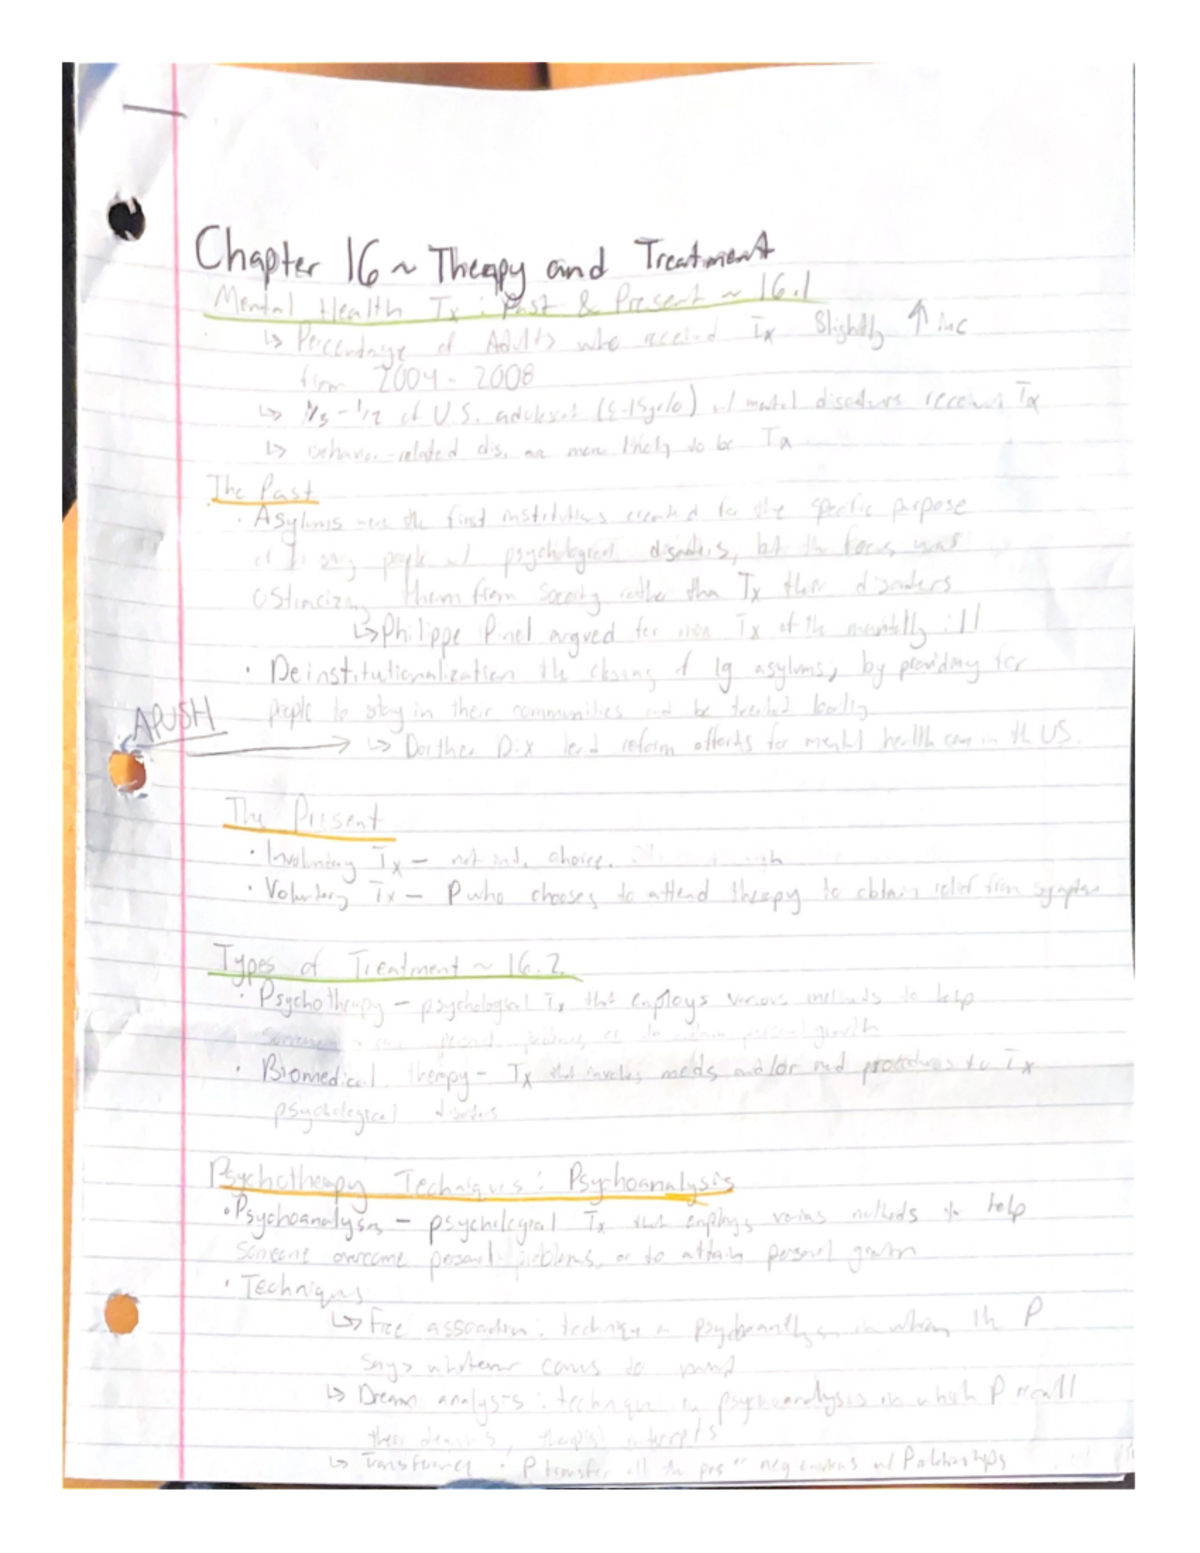 Chapter 16 ~ Therapy and Treatment
Mental Health Tx : Past & Present ~ 16.1
↳ Percentage of Adults who Tx Slightly ↑ inc
from 2004 - 2008
↳ 1/3 - 1/2 of U.S. w/ mental disorders Tx
↳ -related dis. are more likely to be Tx
The Past
· Asylums were the first institutions created for the specific purpose
of people w/ psychological disorders, but the focus was
them from rather than Tx their disorders
↳ Philippe Pinel argued for more Tx of the mentally ill
· Deinstitutionalization the closing of lg asylums, by providing for
people to stay in their communities and be treated locally
APUSH
↳ Dix lead reform for mental health care in the US.
The Present
· Involuntary Tx - not ind. choice.
· Voluntary Tx - P who chooses to attend therapy to obtain relief from
Types of Treatment ~ 16.2
· Psychotherapy - psychological Tx that employs various methods to help
personal growth
· Biomedical therapy - Tx that involves meds and/or med procedures to Tx
psychological
Psychotherapy Techniques : Psychoanalysis
· Psychoanalysis - psychological Tx that employs various methods to help
someone overcome personal problems, or to attain personal growth
· Techniques
↳ Free association : in which the P
says whatever comes to mind
↳ Dream analysis : technique in psychoanalysis in which P recall
their dreams,
↳ P transfer all the w/